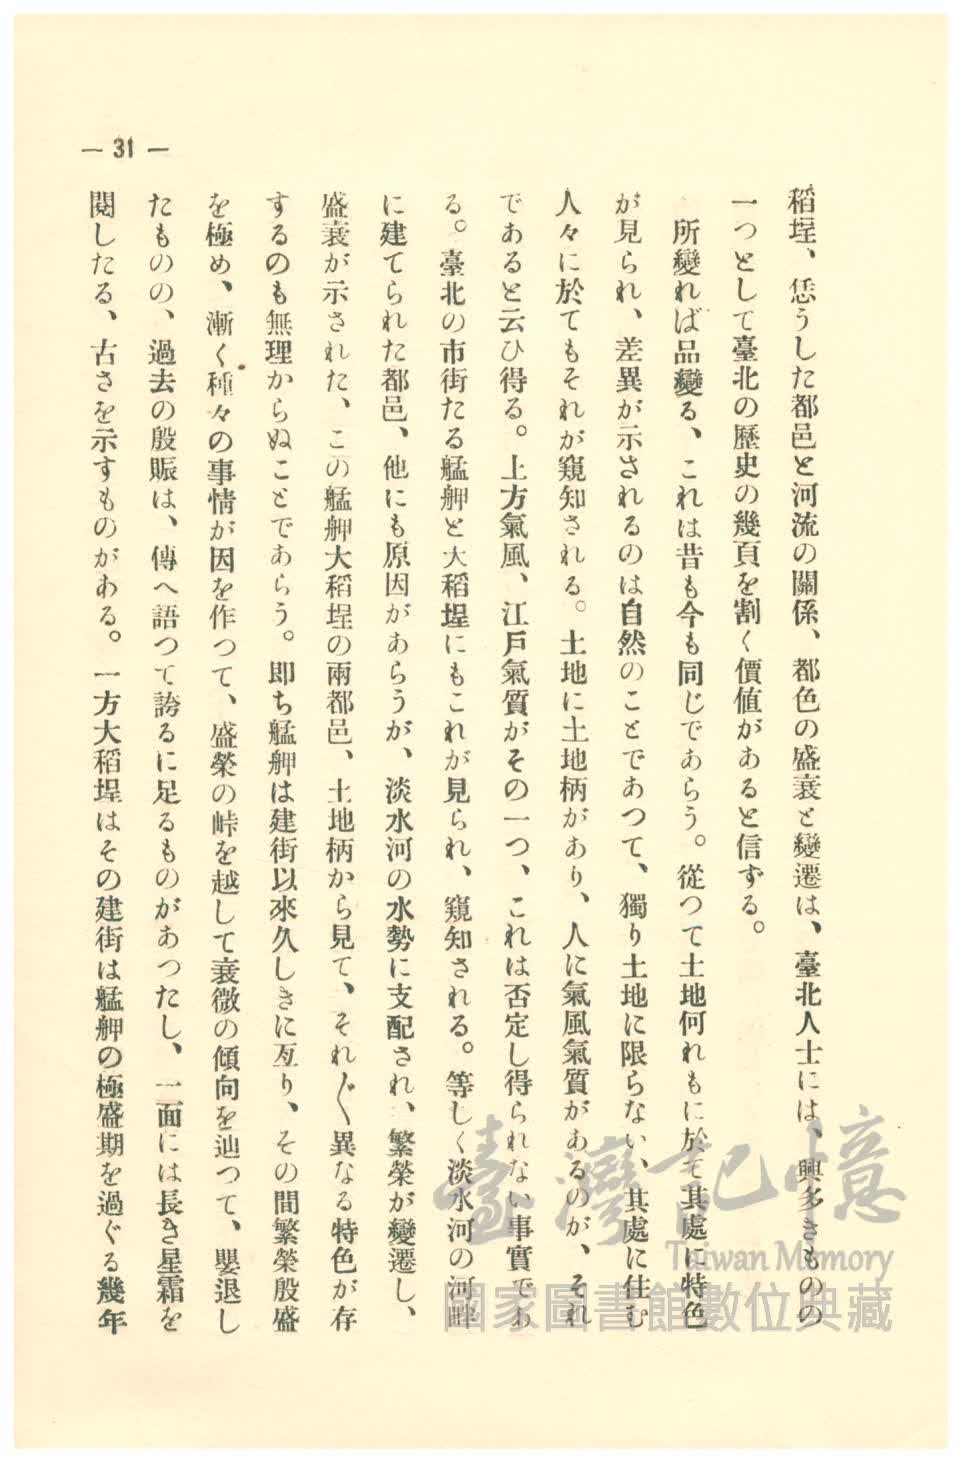 稻埕、恁うした都邑と河流の關係、都色の盛衰と變遷は、臺北人士には、興多きものの
一つとして臺北の歷史の幾頁を割く價値があると信ずる。
所變れば品變る、これは昔も今も同じであらう。從つて土地何れもに於て其處に特色
が見られ、差異が示されるのは自然のことであつて、獨り土地に限らない、其處に住む
人々に於てもそれが窺知される。土地に土地柄があり、人に氣風氣質があるのが、それ
であると云ひ得る。上方氣風、江戶氣質がその一つ、これは否定し得られない事實であ
る。臺北の市街たる艋舺と大稻埕にもこれが見られ、窺知される。等しく淡水河の河畔
に建てられた都邑、他にも原因があらうが、淡水河の水勢に支配され、繁榮が變遷し、
盛衰が示された、この艋舺大稻埕の兩都邑、土地柄から見て、それ〴〵異なる特色が存
するのも無理からぬことであらう。即ち艋舺は建街以來久しきに亙り、その間繁榮殷盛
を極め、漸く種々の事情が因を作つて、盛榮の峠を越して衰微の傾向を辿つて、嬰退し
たものの、過去の殷賑は、傳へ語つて誇るに足るものがあつたし、一面には長き星霜を
閱したる、古さを示すものがある。一方大稻埕はその建街は艋舺の極盛期を過ぐる幾年
— 31 —
臺灣記憶
Taiwan Memory
國家圖書館數位典藏